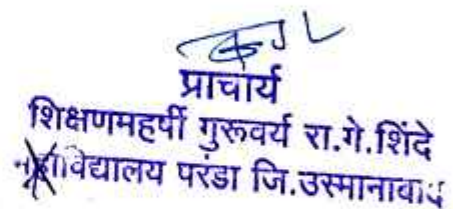 प्राचार्य
शिक्षणमहर्षी गुरूवर्य रा.गे.शिंदे
महाविद्यालय परंडा जि.उस्मानाबाद